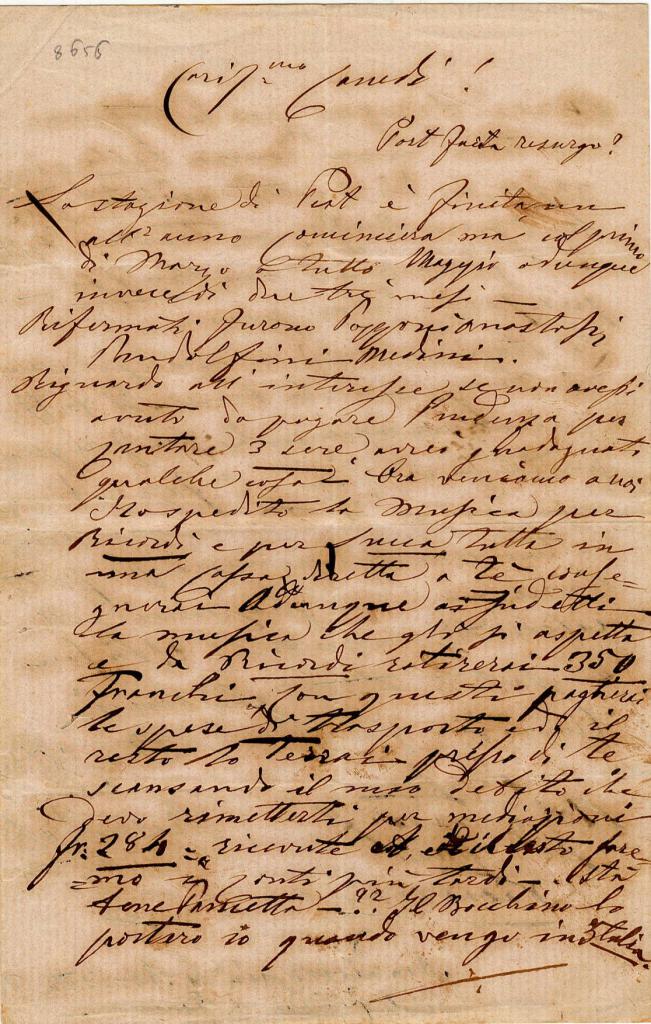 8656
Cariss.mo Canedi!
Post facta resurgo?
La stagione di Post è finita, un
all° anno comincierà ma col primo
di Marzo a tutto Maggio adunque
invece di due tre mesi —
Rifermati furono Pozzoni Anastasi,
Pandolfini Medini.
Riguardo all' interesse se non avessi
avuto da pagare per
cantare 3 sere avrei guadagnato
qualche cosa. Ora veniamo a noi
Ho spedito la musica per
Ricordi e per Lucca tutta in
una cassa diretta a te conse-
gnerai Adunque ai sudetti
la musica che gli si aspetta
e da Ricordi ritirerai 350
Franchi, con questi pagherai
le spese di trasporto ed il
resto lo terrai presso di te
scansando il mio debito che
devo rimetterti per mediazioni
fr: 284 = ricevute il resto fare-
mo i conti più tardi. Stà
bene Pancetta — ?? Il Bocchino lo
porterò io quando vengo in Italia.